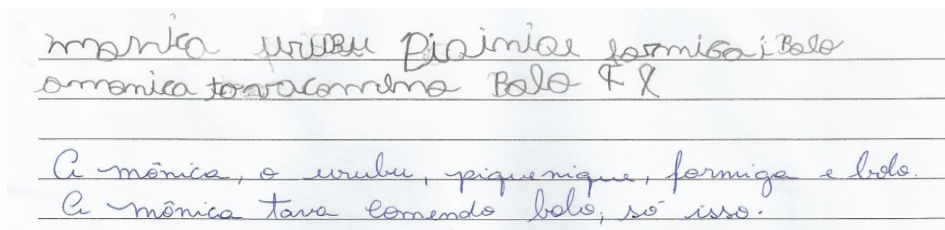 monica uruBu Piqinique formiga i Bolo
amonica tavacomeno Bolo
A mônica, o urubu, piquenique, formiga e bolo.
A mônica tava comendo bolo, só isso.